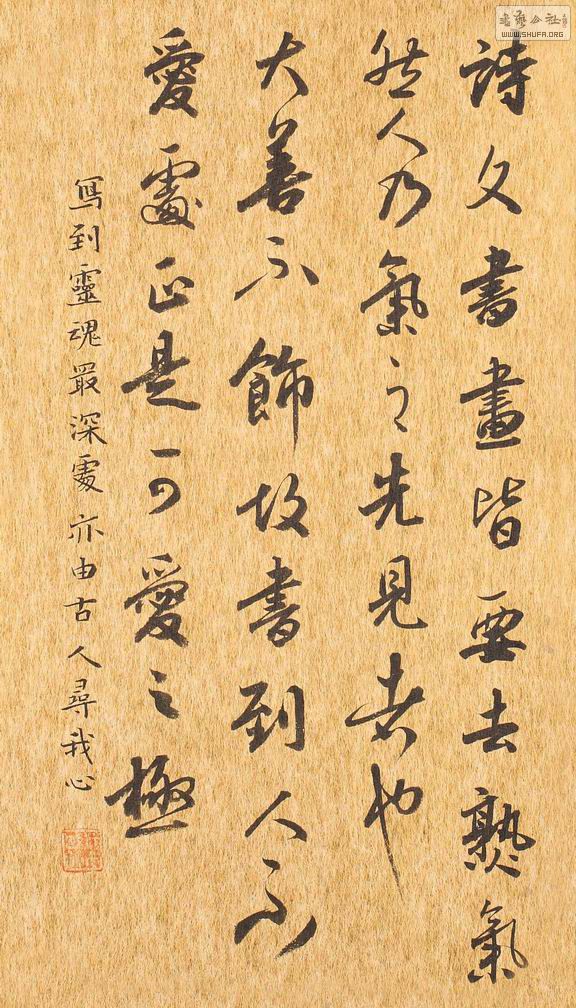 詩文書畫皆要去熟氣
然人乃氣之先見者也
大善不飾故書到人不
愛處正是可愛之極
寫到靈魂最深處亦由古人尋我心
書藝公社
WWW.SHUFA.ORG